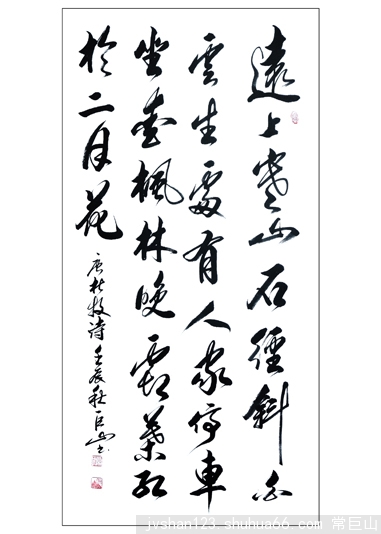 遠上寒山石徑斜白
雲生處有人家停車
坐愛楓林晚霜葉紅
於二月花
唐杜牧诗壬辰秋巨山书
jvshan123.shuhua66.com 常巨山